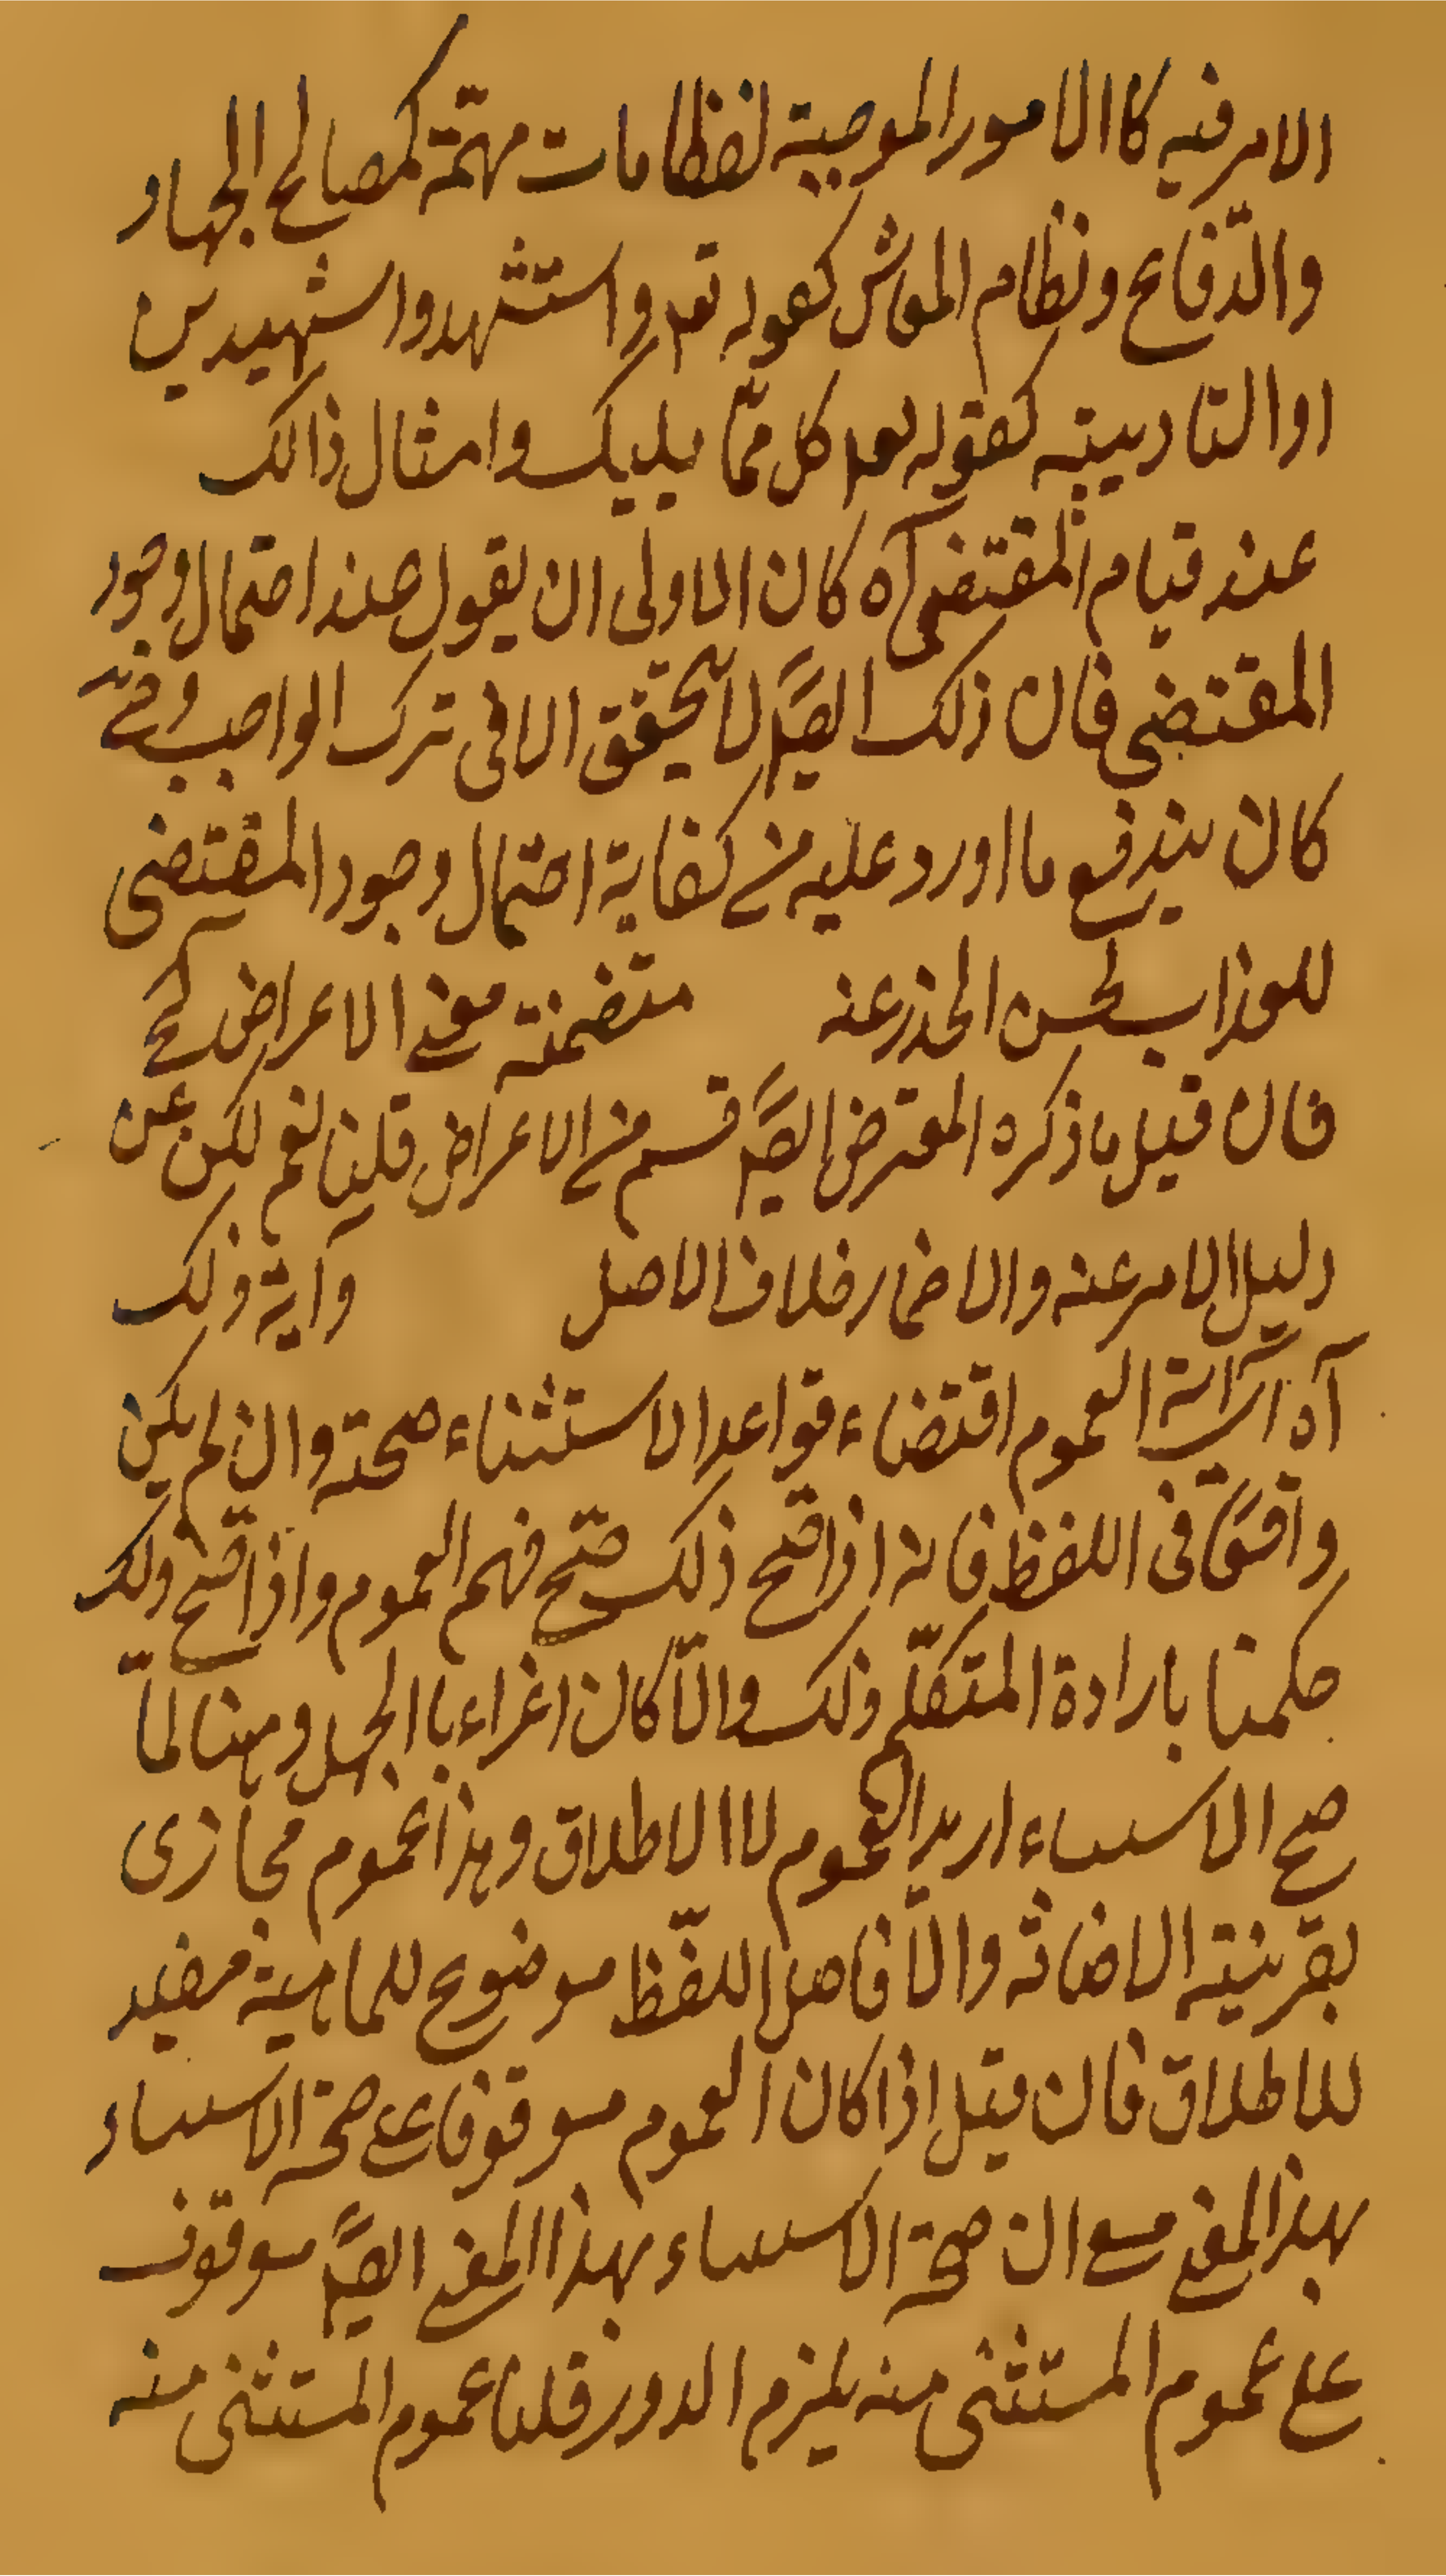 الامر فيه كا الامور الموجبة لنظامات مهمّة كمصالح الجهاد
والدّفاع ونظام المعاش كقوله تع واستشهدوا شهيدين
اوا التاديبيّة كقوله تع كل ممّا يليك وامثال ذالك
عند قيام المقتضى آه كان الاولى ان يقول عند احتمال وجود
المقتضى فان ذلك ايضًا لا يتحقق الا فى ترك الواجب وفيه
كان يندفع ما اورد عليه من كفاية احتمال وجود المقتضى
للعذاب لحسن الحذر عنه متضمنة معنى الاعراض آه
فان قيل ما ذكره المعترض ايضًا قسم من الاعراض قلنا نعم لكن عن
دليل الامر عنه والاضمار خلاف الاصل وآية ذلك
آه آية العموم اقتضاء قواعد الاستثناء صحته وان لم يكن
واقعًا فى اللفظ فانه اذا صح ذلك صحّ فهم العموم واذا صح ذلك
حكمنا بارادة المتكلّم ذلك والّا كان اغراء با الجهل وهنا لمّا
صح الاستثناء اريد العموم لا الاطلاق وهذا عموم مجازى
بقرينته الاضافه والّا فاصل اللفّظ موضوع للماهية مفيد
للاطلاق فان قيل اذا كان العموم موقوفا على صحة الاستثناء
بهذا المعنى مع ان صحة الاستثناء بهذا المعنى ايضًا موقوف
على عموم المستثنى منه يلزم الدور قلنا عموم المستثنى منه